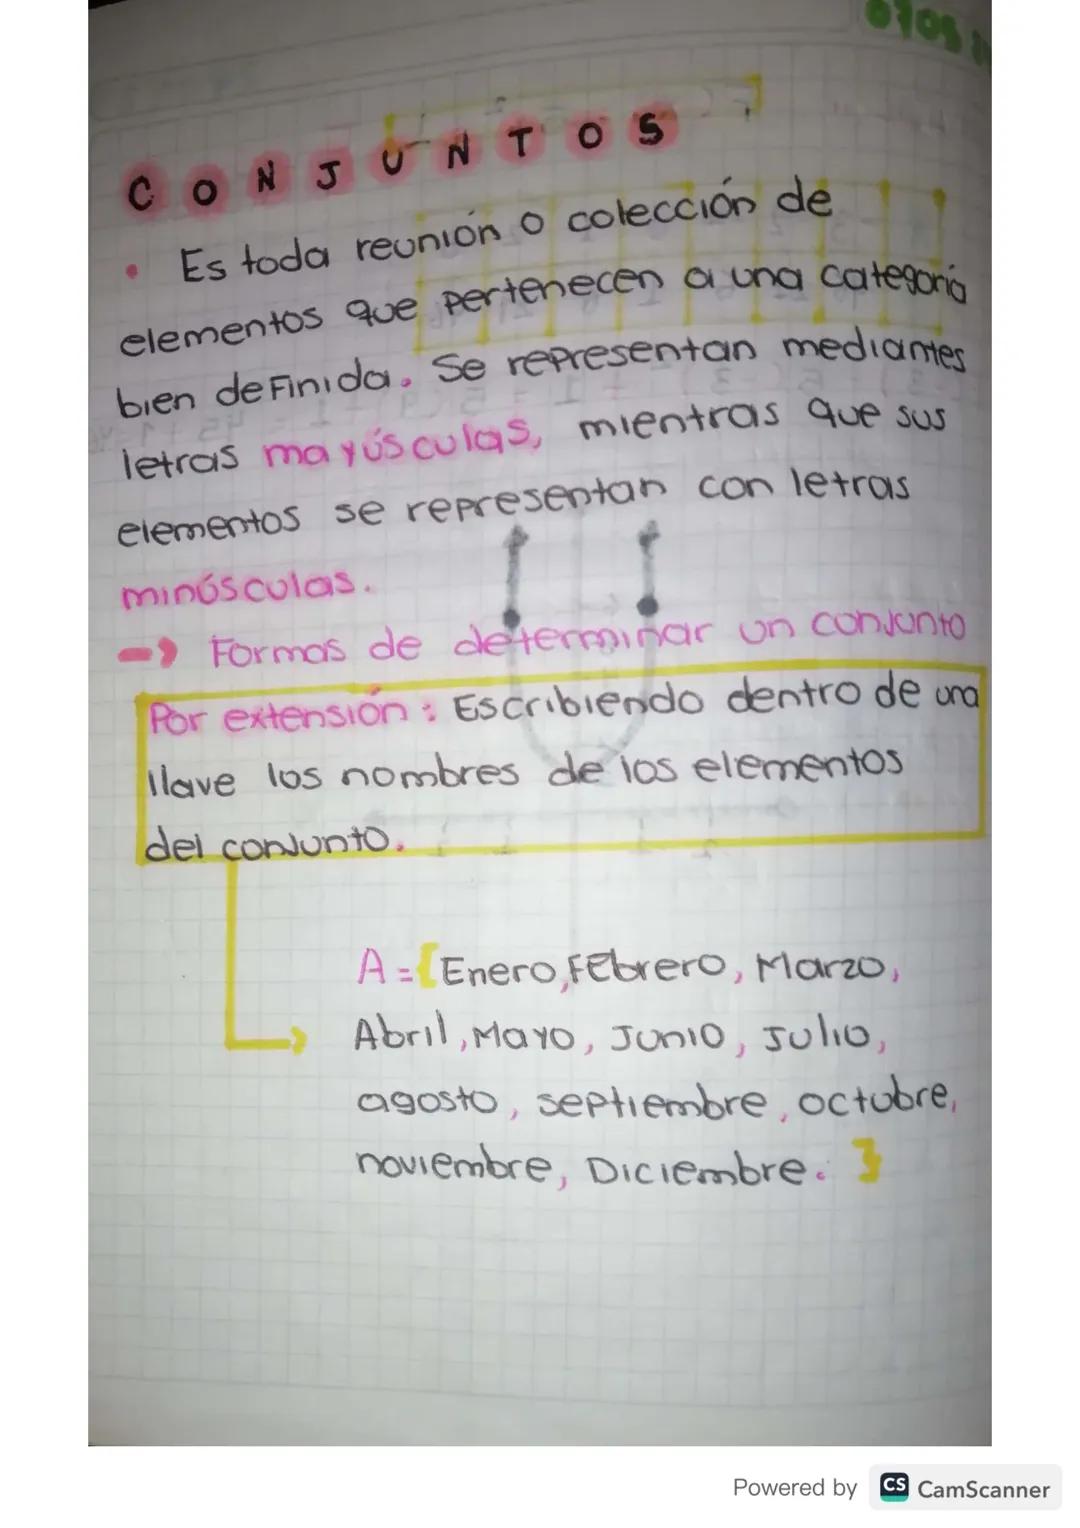 CONJUNTOS
• Es toda reunión o colección de
elementos que pertenecen a una categoría
bien definida. Se representan mediantes
letras mayúsculas, mientras que sus
elementos se representan con letras
minúsculas.
→ Formas de determinar un conjunto
Por extensión: Escribiendo dentro de una
llave los nombres de los elementos
del conjunto.
A = {Enero, Febrero, Marzo,
Abril, Mayo, Junio, Julio,
agosto, septiembre, octubre,
noviembre, Diciembre. }
Powered by CS CamScanner